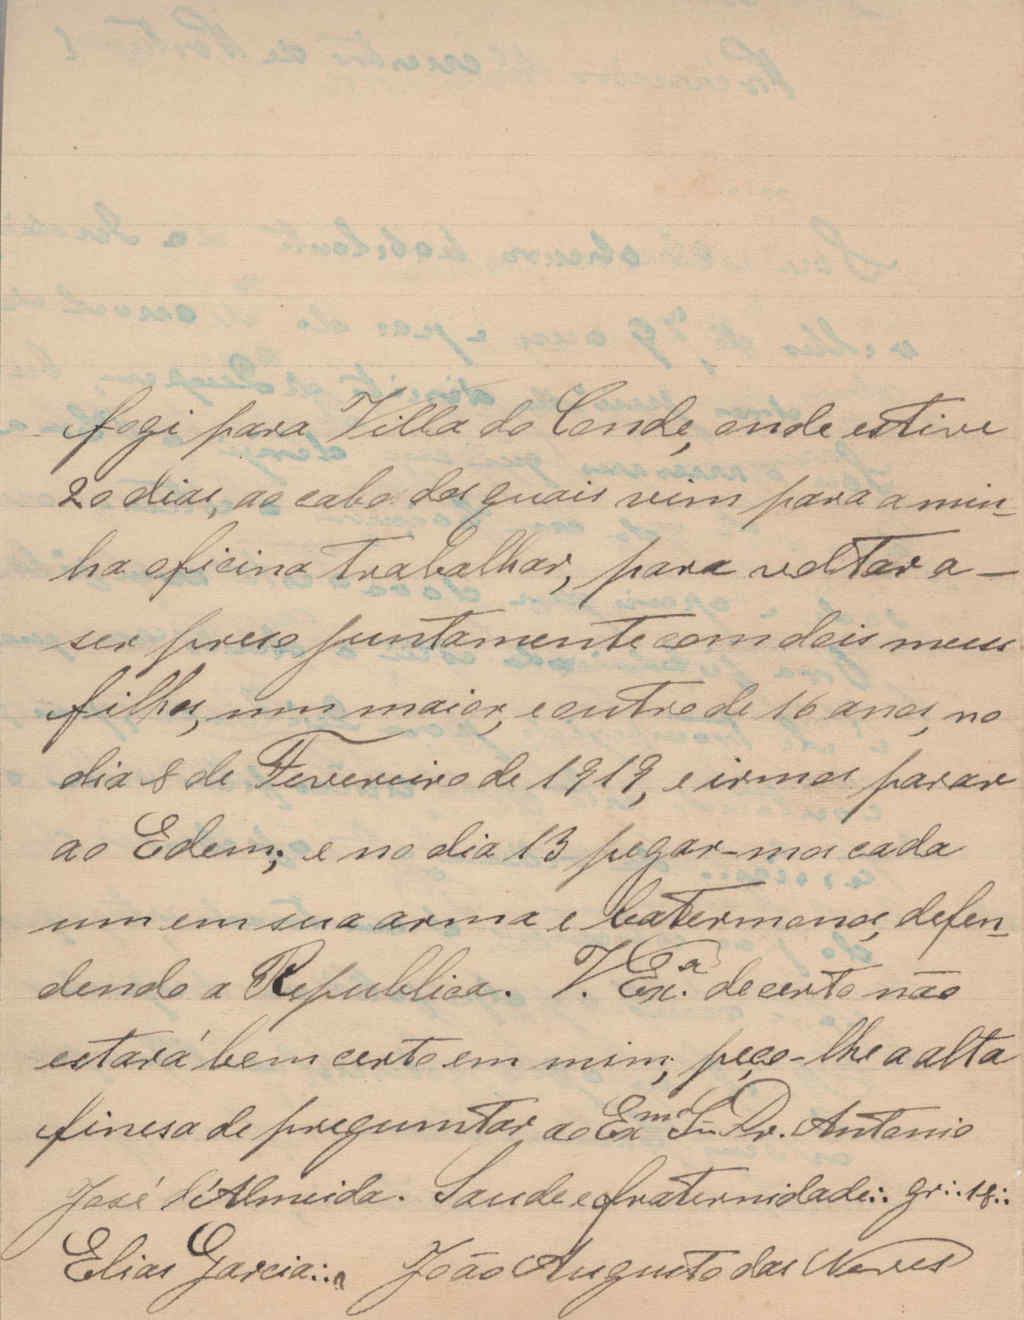 fogi para Villa do Conde, onde estive
20 dias, ao cabo dos quais vim para a min-
ha oficina trabalhar, para voltar a -
ser preso juntamente com dois meus
filhos, um maior, e outro de 16 anos, no
dia 8 de Fevereiro de 1919, e irmos parar
ao Edem; e no dia 13 pegar-mos cada
um em sua arma e batermonos, defen-
dendo a Republica. V. Exª. decerto não
estará bem certo em mim; peço-lhe a alta
finesa de preguntar ao Exmº Snr Dr. Antonio
José d'Almeida. Saude e fraternidade∴ gr∴ 18∴
Elias Garcia∴ João Augusto das Neves